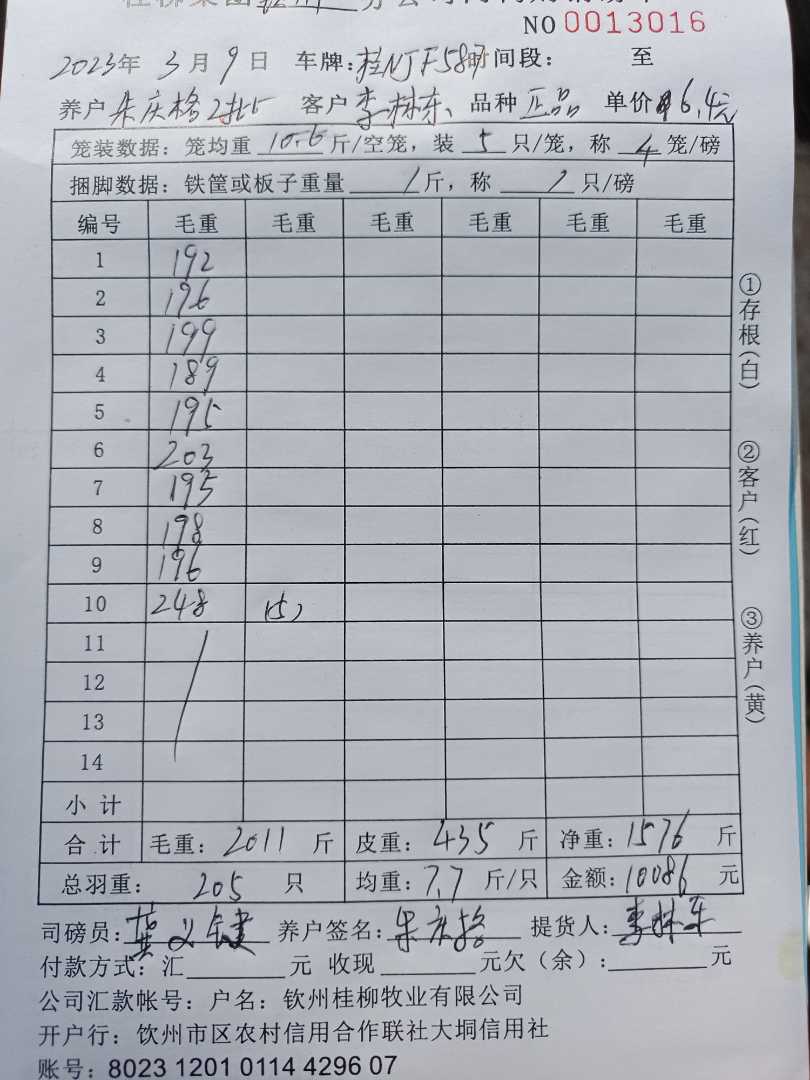 NO 0013016
2023年 3月 9日 车牌:桂NJF587 时间段: 至
养户 客户 李林东、 品种 正品 单价 6.4元
笼装数据: 笼均重 10.6 斤/空笼, 装 5 只/笼, 称 4 笼/磅
捆脚数据: 铁筐或板子重量 / 斤, 称 / 只/磅
编号 毛重 毛重 毛重 毛重 毛重 毛重
1 192
2 196
3 199
4 189
5 195
6 203
7 195
8 198
9 196
10 248 (5)
11
12
13
14
小 计
合 计 毛重: 2011 斤 皮重: 435 斤 净重: 1576 斤
总羽重: 205 只 均重: 7.7 斤/只 金额: 10086 元
司磅员: 养户签名: 朱庆格 提货人: 李林东
付款方式: 汇 元 收现 元欠(余): 元
公司汇款帐号: 户名: 钦州桂柳牧业有限公司
开户行: 钦州市区农村信用合作联社大垌信用社
账号: 8023 1201 0114 4296 07
①存根(白)
②客户(红)
③养户(黄)